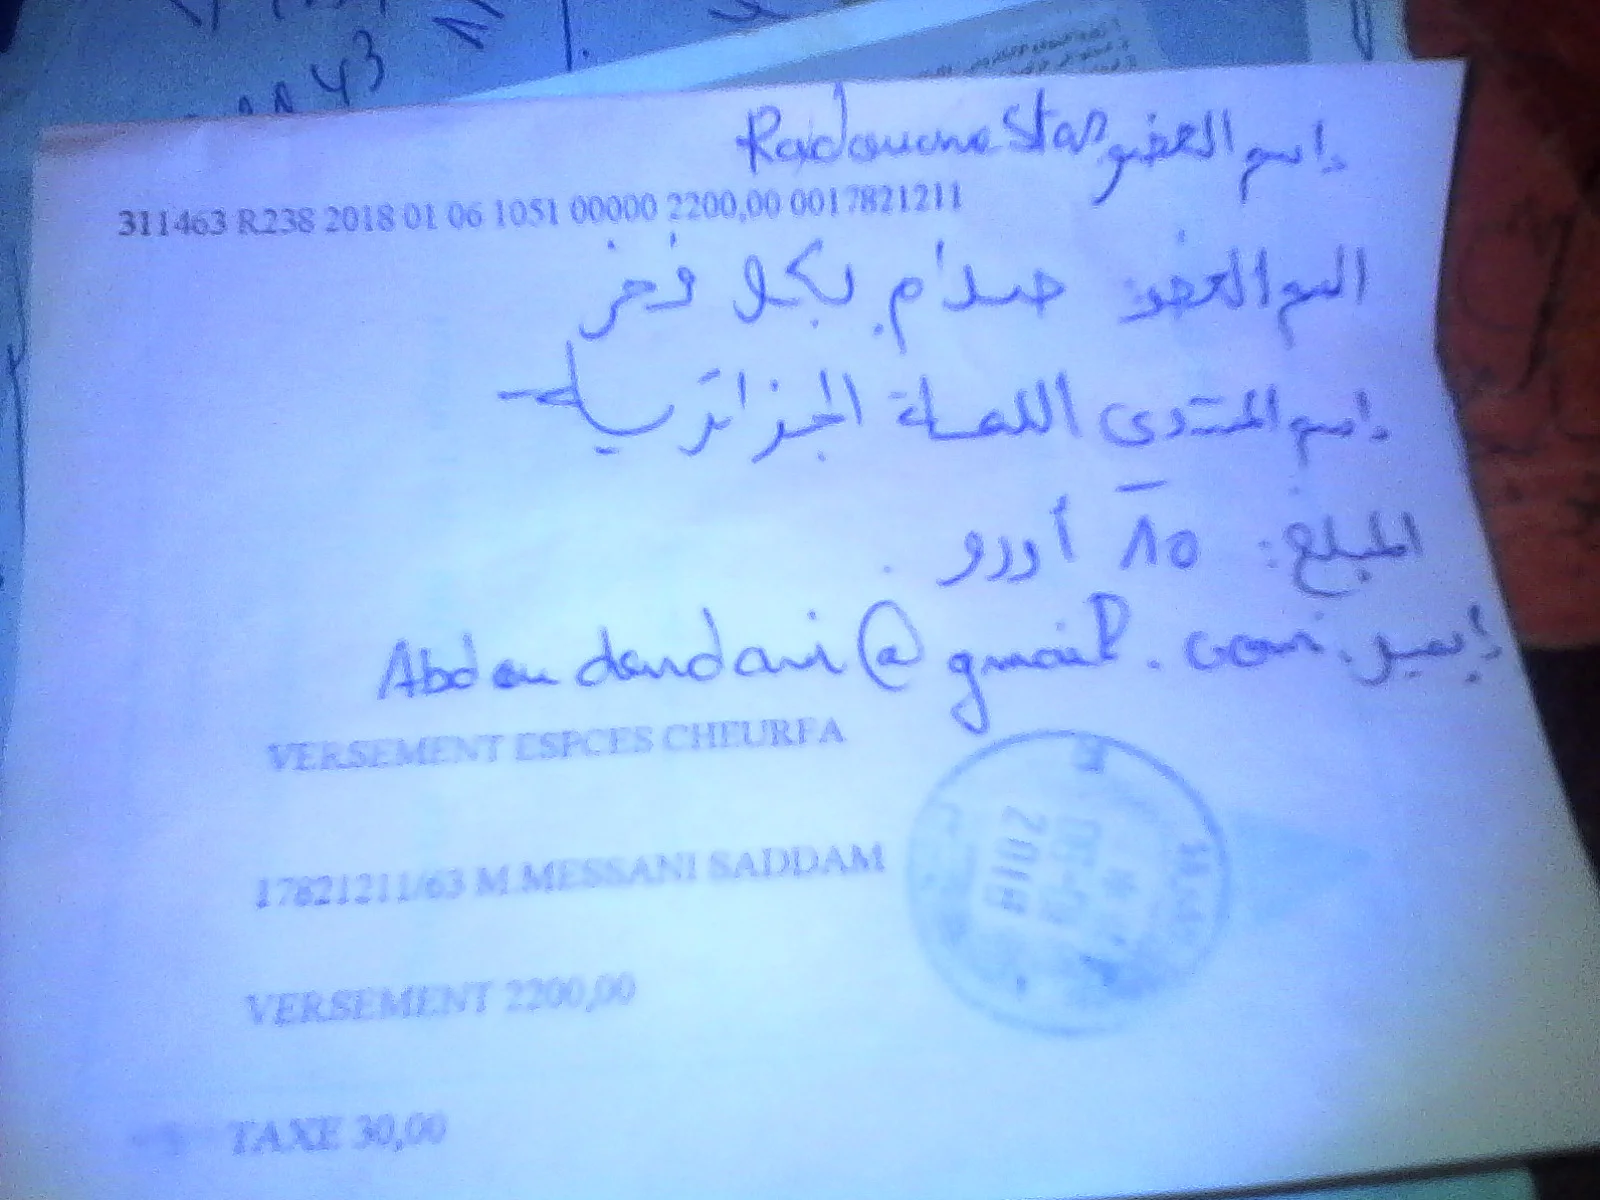 اسم العضو RadouaneStar
311463 R238 2018 01 06 1051 00000 2200,00 0017821211
اسم العضو: صدام بكل فخر
اسم المنتدى اللمة الجزائرية
المبلغ: 10 أورو
إيميل. Abdoudandani@gmail.com
VERSEMENT ESPCES CHEURFA
17821211/63 M MESSANI SADDAM
2018
VERSEMENT 2200,00
TAXE 30,00